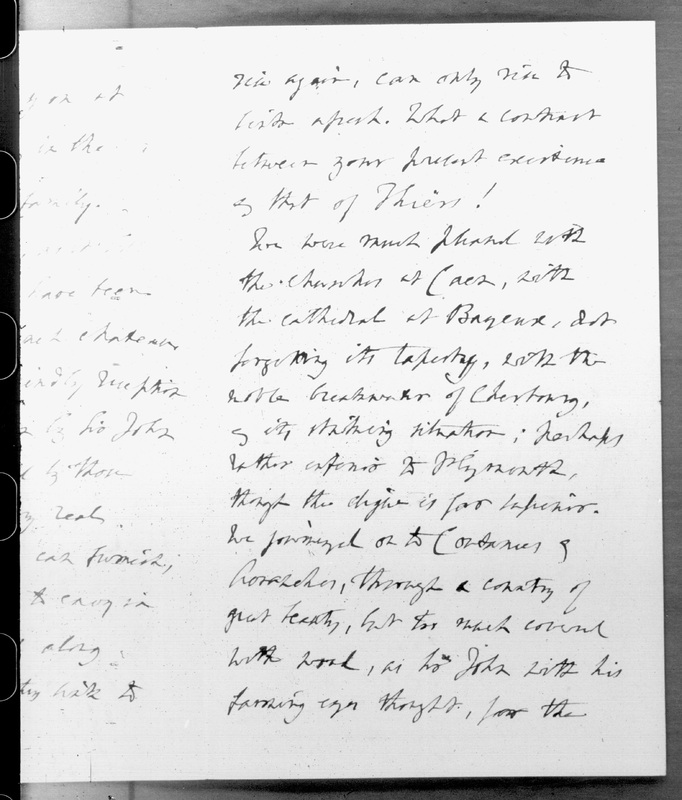 yon at
in the
family.
have been
chateaux
kindly reception
by Sir John
by those
real
can furnish;
to enjoy in
along
to
rise again, can only rise to
birth afresh. What a contrast
between your present existence
& that of Thiers!
We were much pleased with
the churches at Caen, with
the cathedral at Bayeux, not
forgetting its tapestry, with the
noble breakwater of Cherbourg,
& its striking situation; perhaps
rather inferior to Plymouth,
though the digue is far superior.
We journeyed on to Coutances &
Avranches, through a country of
great beauty, but too much covered
with wood, as Sir John with his
farming eyes thought, for the